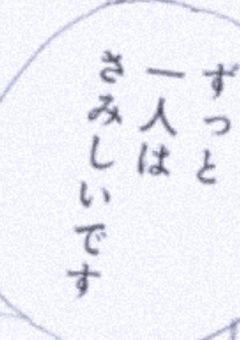 ずっと
一人は
さみしいです